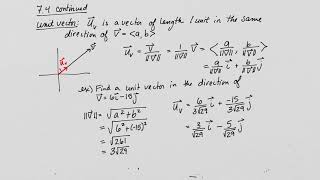 7.4 continued
Unit vector: u⃗ᵥ is a vector of length 1 unit in the same
direction of v⃗ = <a, b>
u⃗ᵥ = v⃗/||v⃗|| = 1/||v⃗|| v⃗ = <a/||v⃗||, b/||v⃗||>
= a/||v⃗|| i⃗ + b/||v⃗|| j⃗
ex) Find a unit vector in the direction of
v⃗ = 6i⃗ - 15j⃗
||v⃗|| = √(a² + b²)
= √(6² + (-15)²)
= √261
= 3√29
u⃗ᵥ = 6/(3√29) i⃗ + -15/(3√29) j⃗
= 2/√29 i⃗ - 5/√29 j⃗